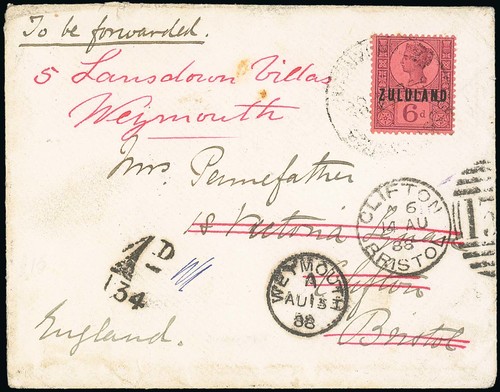 To be forwarded.
5 Lansdown Villas
Weymouth
ZULULAND
6d
Mrs. Pennefather
18 Victoria
Clifton
Bristol
CLIFTON
6
AU
88
BRISTOL
D
134
WEYMOUTH
A
AU 13
88
England.